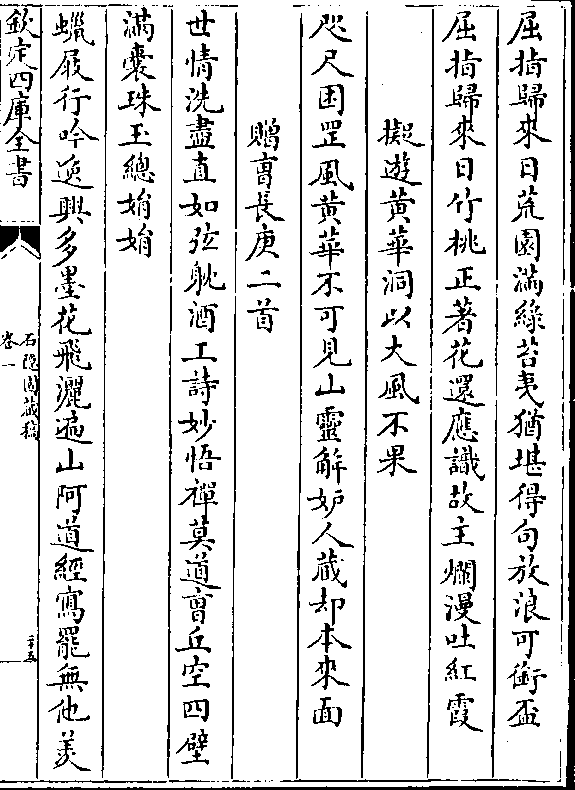 屈指歸來日荒園滿綠苔夷猶堪得句放浪可銜盃
屈指歸來日竹桃正著花還應識故主爛漫吐紅霞
擬遊黃華洞以大風不果
咫尺困罡風黃華不可見山靈解妒人藏却本來面
贈亶長庚二首
世情洗盡直如弦躭酒工詩妙悟禪莫道亶丘空四壁
滿囊珠玉總娟娟
蠟屐行吟逸興多墨花飛灑遍山阿道經寫罷無他羙
欽定四庫全書
石隱園藏稿
卷一
二十五